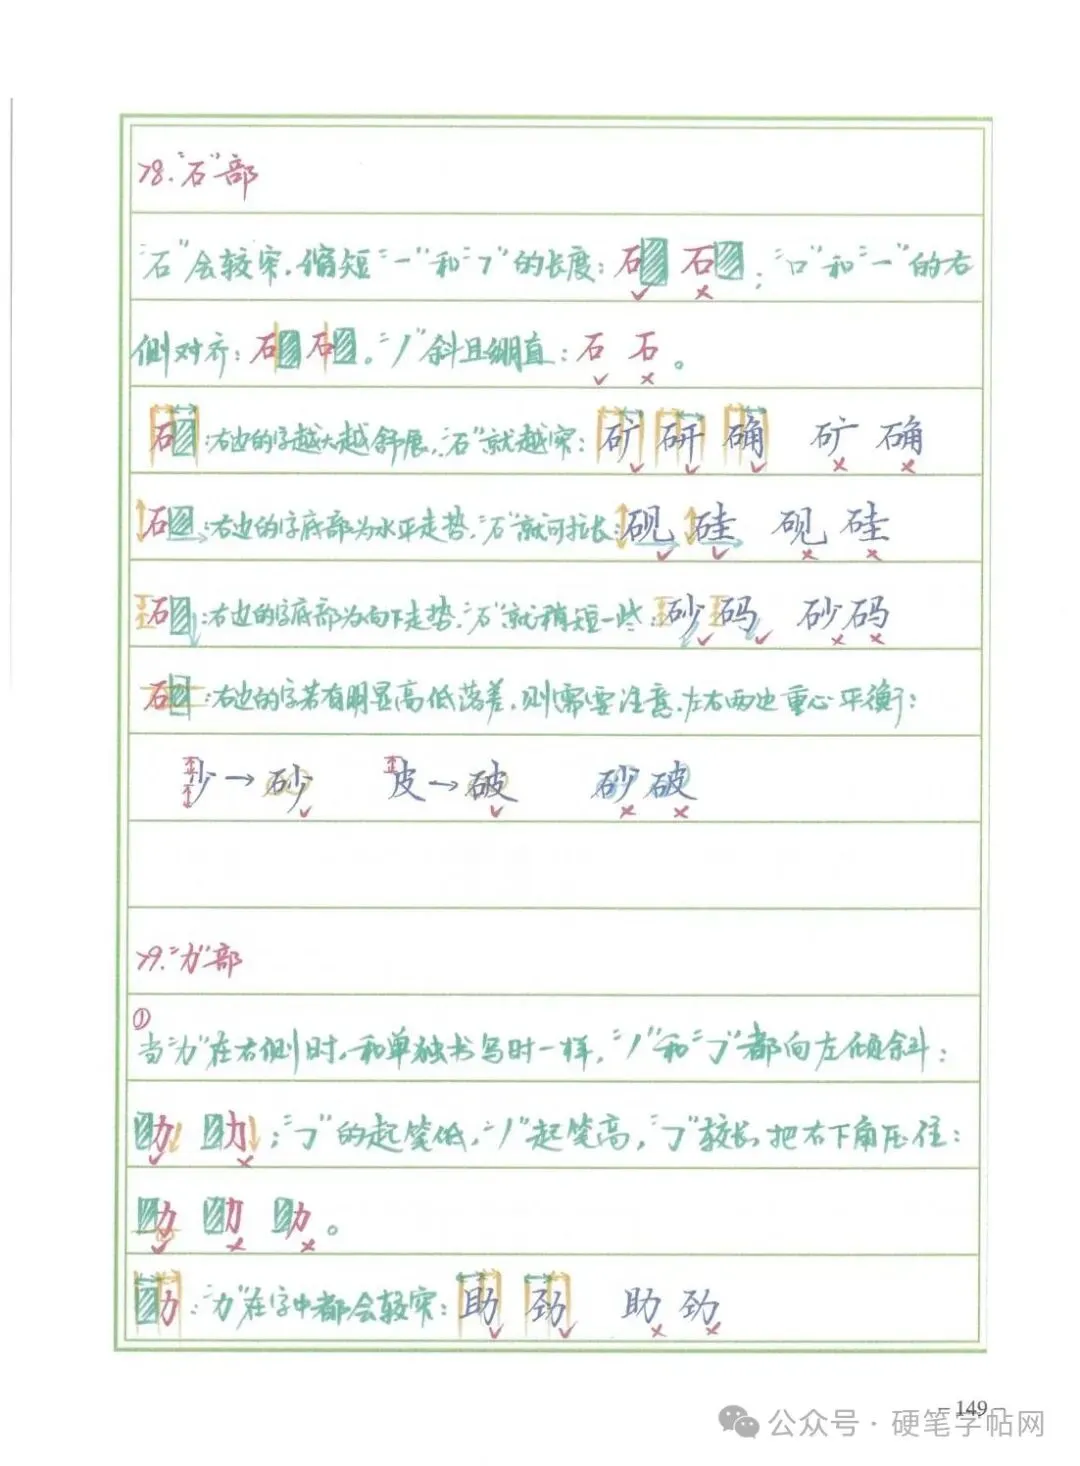 78."石"部
"石"会较窄,缩短"一"和"丿"的长度:石 石;"口"和"一"的右
侧对齐:石 石。"丿"斜且绷直:石 石。
石:右边的字越大越舒展,"石"就越窄:矿 研 确 矿 确
石:右边的字底部为水平走势,"石"就可拉长:砚 硅 砚 硅
石:右边的字底部为向下走势,"石"就稍短一些:砂 码 砂 码
石:右边的字若有明显高低落差,则需要注意,左右两边重心平衡:
少→砂 皮→破 砂 破
79."力"部
①
当"力"在右侧时,和单独书写时一样,"丿"和"𠃌"都向左倾斜:
助 助;"𠃌"的起笔低,"丿"起笔高,"𠃌"较长,把右下角压住:
力 力 力。
力:"力"在字中都会较窄:助 劲 助 劲
-149-
公众号·硬笔字帖网